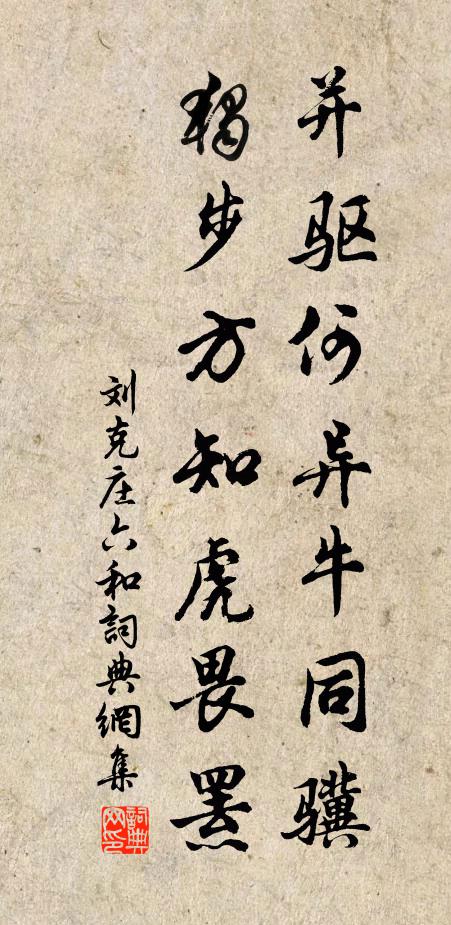 并驱何异牛同骥
独步方知虎畏罴
刘克庄六和詞典網集
詞典網印